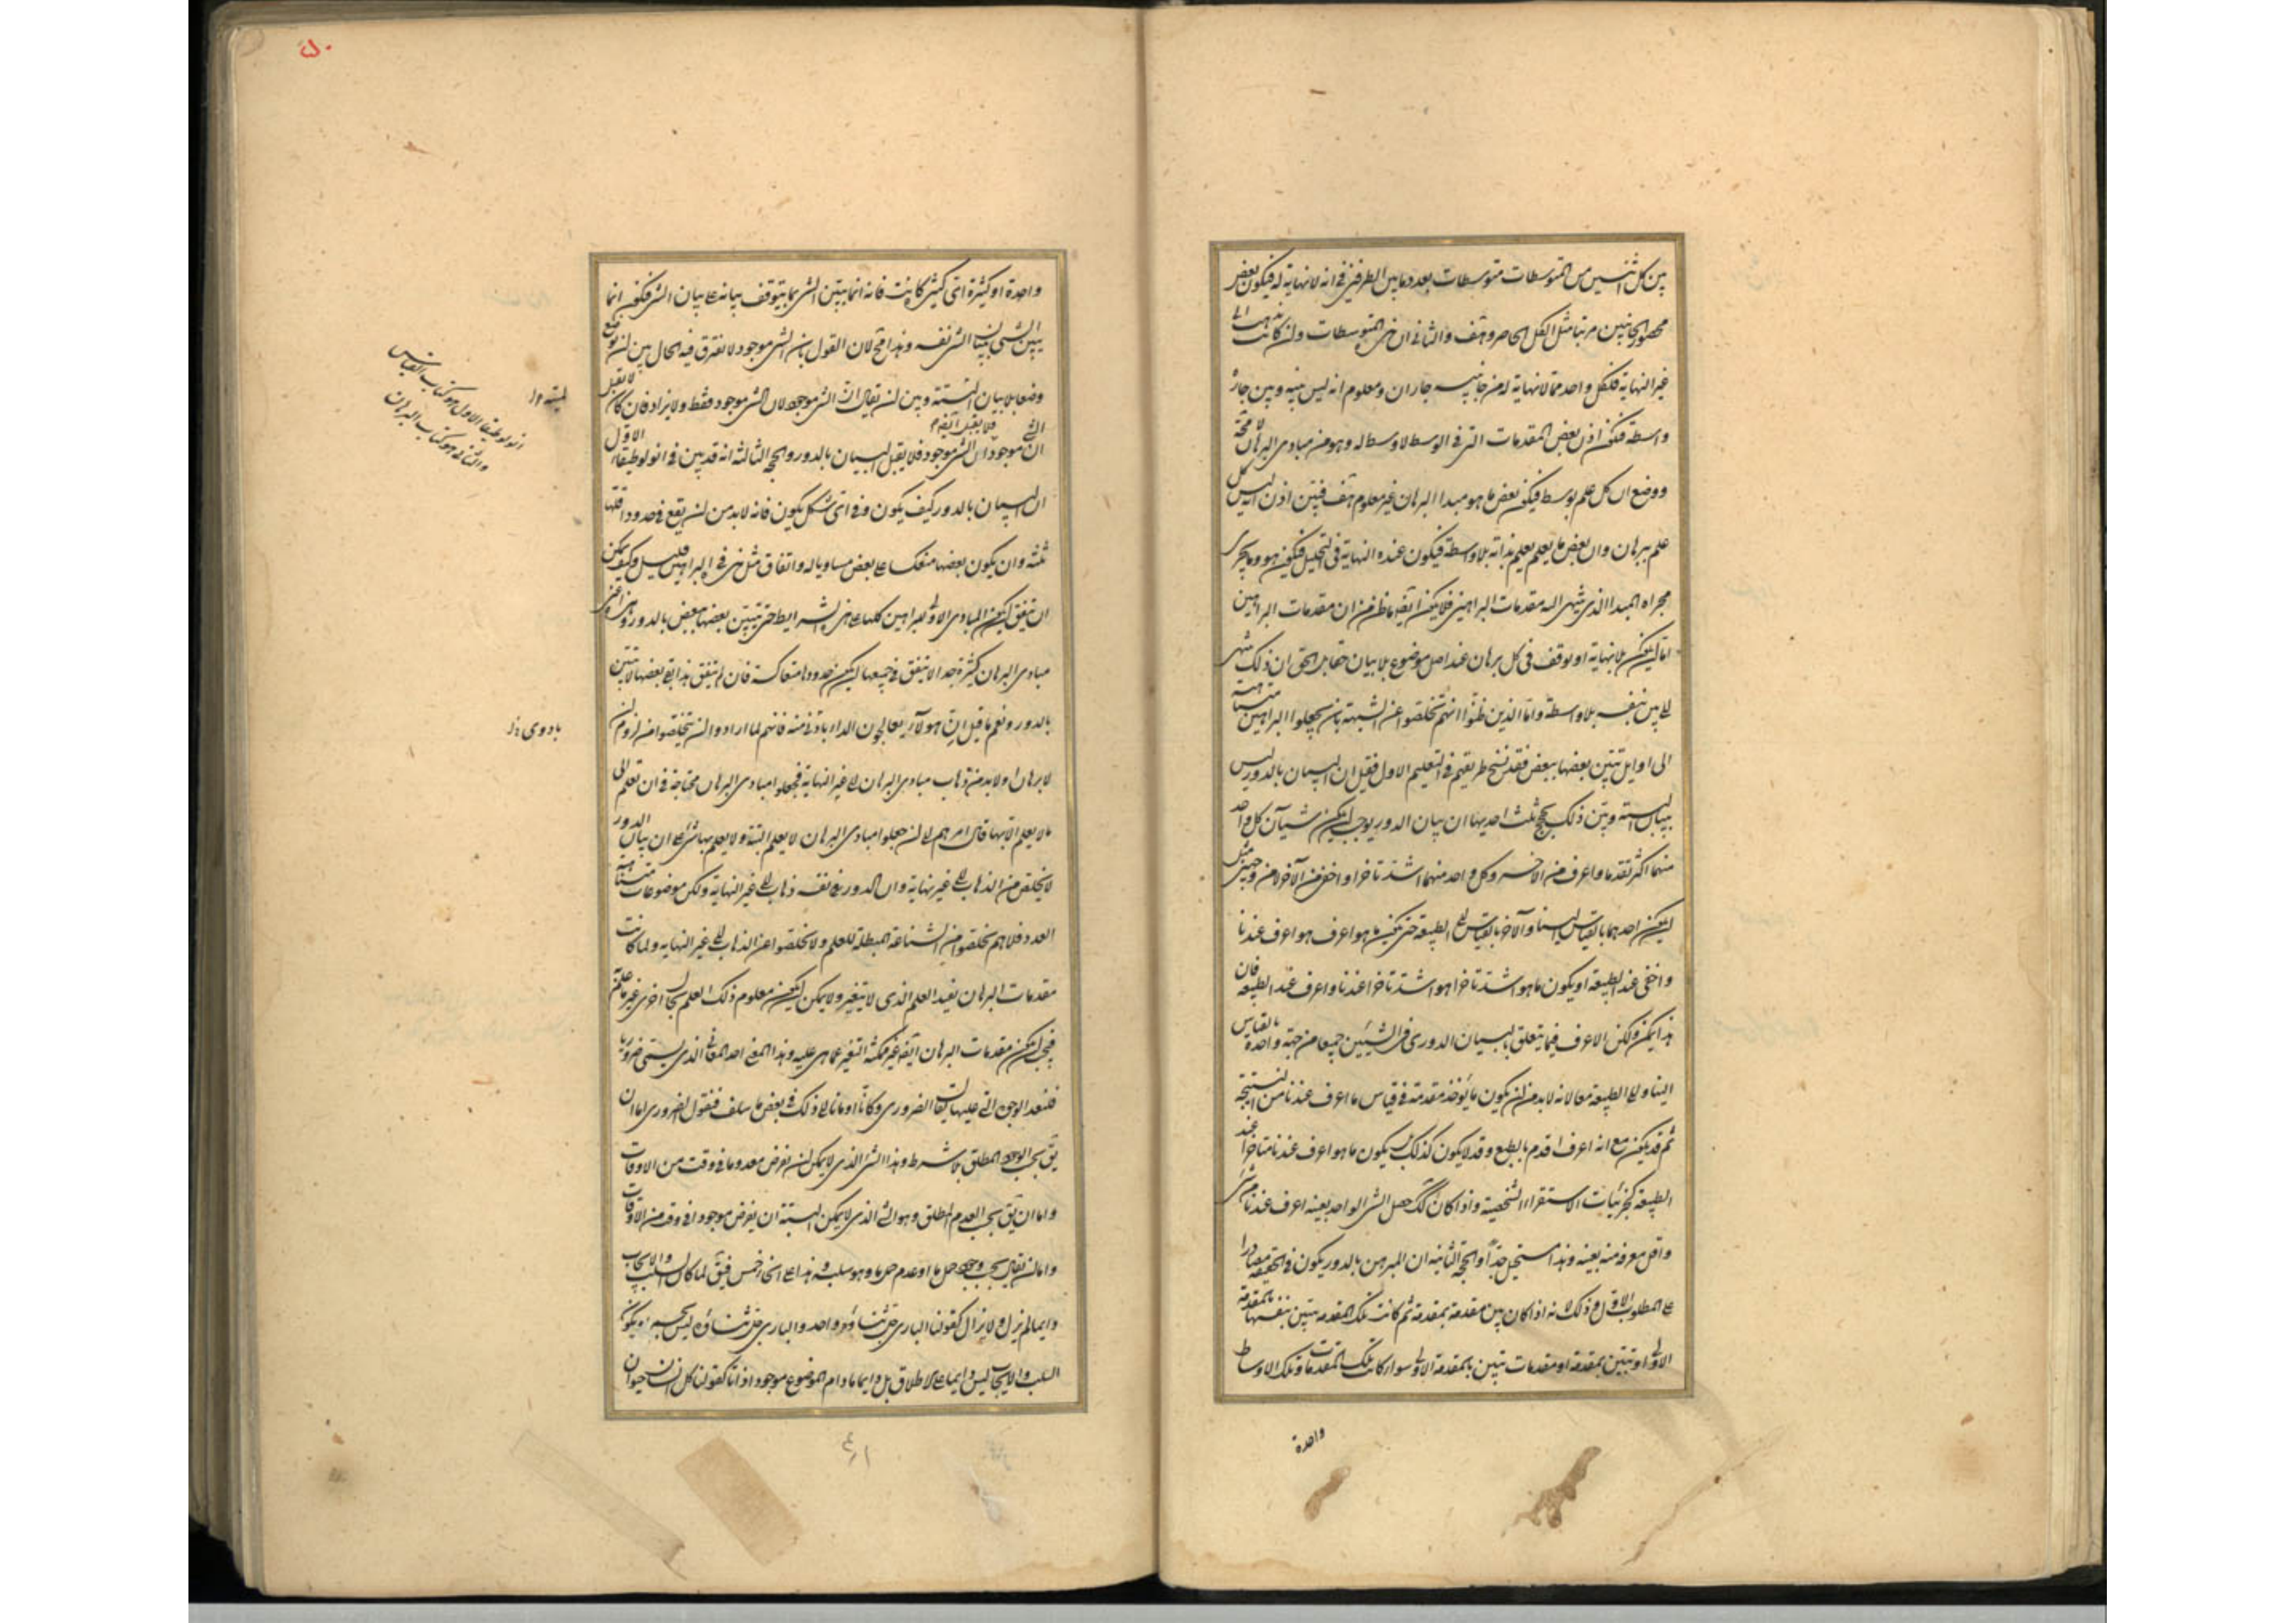 بين كل اثنين من المتوسطات متوسطات بعدد ما بين الطرفين فى انه لا نهاية له فيكون بعض
محصور الجانبين مرتبا مثل الكل الحاصر وهف والثانى ان هذه المتوسطات وان كانت تذهب الى
غير النهاية فلكل واحد مما لا نهاية له من جانبيه جاران ومعلوم انه ليس بينه وبين جاره
واسطة فيكون اذن بعض المقدمات التى فى الوسط لا وسط له وهو من مبادى البرهان لا محة
ووضع ان كل علم بوسط فيكون بعض ما هو مبدا البرهان غير معلوم هف فبين اذن انه ليس كل
علم ببرهان وان بعض ما يعلم يعلم بذاته بلا واسطة فيكون عنده النهاية فى التحليل فيكون هو وما يجرى
مجراه المبدا الذى ينتهى اليه مقدمات البراهين فلا يكون ايضا ما ظن من ان مقدمات البراهين
اما ان يكون بلا نهاية او يوقف فى كل برهان عند اصل موضوع بلا بيان حقا بل الحق ان ذلك ينتهى
الى بين بنفسه بلا واسطة واما الذين ظنوا انهم تخلصوا عن الشبهة بان يجعلوا البراهين متناهية
الى اوايل تتبين بعضها ببعض فقد نسخ طريقهم فى التعليم الاول فقيل ان البيان بالدور ليس
ببيان البتة وبين ذلك بحجج ثلث احديها ان بيان الدور يوجب ان يكون شيآن كل واحد
منهما اكثر تقدما واعرف من الاخر وكل واحد منهما اشد تاخرا واخفى من الآخر لا من وجهين مثل
ان يكون احدهما بالقياس الينا والآخر بالقياس الى الطبيعة حتى يكون ما هو اعرف هو اعرف عندنا
واخفى عند الطبيعة او يكون ما هو اشد تاخرا هو اشد تاخرا عندنا واعرف عند الطبيعة فان
هذا يمكن ولكن الاعرف فيما يتعلق بالبيان الدورى فى الشيئين جميعا من جهة واحدة بالقياس
الينا والى الطبيعة معا لانه لا بد من ان يكون ما يؤخذ مقدمة فى قياس ما اعرف عندنا من النتيجة
ثم قد يكون مع انه اعرف اقدم بالطبع وقد لا يكون كذلك بل يكون ما هو اعرف عندنا متاخرا عند
الطبيعة كجزئيات الاستقراء الشخصية واذا كان كك حصل الشى الواحد بعينه اعرف عندنا من شى
واقل معرفة منه بعينه وهذا مستحيل جدا والحجة الثانية ان المبرهن بالدور يكون فى الحقيقة مصادرا
على المطلوب الاول وذلك لانه اذا كان بين مقدمة بمقدمة ثم كانت تلك المقدمة تبين بنفسها بالمقدمة
الاولى او تبين بمقدمة او مقدمات تبين بالمقدمة الاولى سواء كانت تلك المقدمات وتلك الاوساط
واحدة
واحدة او كثيرة اى كثير كانت فانه انما يتبين الشى بما يتوقف بيانه على بيان الشى فيكون انما
يبين الشى ببيان الشى نفسه وهذا مح لان القول بان الشى موجود لا نفترق فيه الحال بين ان يوضع
وضعا بلا بيان البتة وبين ان يقال ان الشى موجود لان الشى موجود فقط ولا يزاد فان كان لا تقبل
ان موجود ان الشى موجود فلا يقبل البيان بالدور والحجة الثالثة انه قد بين فى انولوطيقا الاول
ان البيان بالدور كيف يكون وفى اى شكل يكون فانه لا بد من ان يقع فى حدود اقلها
ثلثة وان يكون بعضها منعكسا على بعض مساويا له واتفاق مثل هذه فى البراهين قليل وكيف يمكن
ان يتفق ان يكون المبادى الاولى للبراهين كلها على هذه الشرايط حتى يتبين بعضها ببعض بالدور وهذه اعنى
مبادى البرهان كثيرة جدا لا يتفق فى جميعها ان يكون حدودها متعاكسة فان لم يتفق هذا بقى بعضها لا يتبين
بالدور ونعم ما قيل ان هولآء يعالجون الداء بادوى منه فانهم لما ارادوا ان يتخلصوا من لزوم ان
لا برهان او لا بد من ذهاب مبادى البرهان الى غير النهاية فجعلوا مبادى البرهان محتاجة فى ان تعلم الى
ما لا يعلم الا بها فآل امرهم الى ان جعلوا مبادى البرهان لا يعلم البتة ولا يعلم بها شى على ان بيان الدور
لا يخلص من الذهاب الى غير نهاية وان الدور فى نفسه ذهاب الى غير النهاية ولكن موضوعات متناهية
العدد فلا هم تخلصوا من الشناعة المبطلة للعلم ولا تخلصوا عن الذهاب الى غير النهاية ولما كانت
مقدمات البرهان تفيد العلم الذى لا يتغير ولا يمكن ان يكون معلوم ذلك العلم بحال اخرى غير ما علم
فيجب ان يكون مقدمات البرهان ايضا غير ممكنة التغير عما هى عليه وهذا المعنى احد المعانى الذى يسمى ضروريا
فلنعد الوجوه التى عليها يقال الضرورى وكانا اومانا الى ذلك فى بعض ما سلف فنقول الضرورى اما ان
يق بحسب الوجود المطلق بلا شرط وهذا الشى الذى لا يمكن ان يفرض معدوما فى وقت من الاوقات
واما ان يق بحسب العدم المطلق وهو الشى الذى لا يمكن البتة ان يفرض موجودا فى وقت من الاوقات
واما ان يقال بحسب وجود حمل ما او عدم حمل ما وهو سلبه وهذا على انحاء خمس فيق لما كان السلب والايجاب
دايما لم يزل ولا يزال كقولنا البارى جل ثناؤه واحد والبارى جل ثناؤه ليس بجسم او يكون
السلب والايجاب ليس دايما على الاطلاق بل دايما ما دام الموضوع موجود اذاتا كقولنا كل انسان حيوان
البتة ول
انولوطيقا الاول هو كتاب القياس
والثانى هو كتاب البرهان
بادوى دل